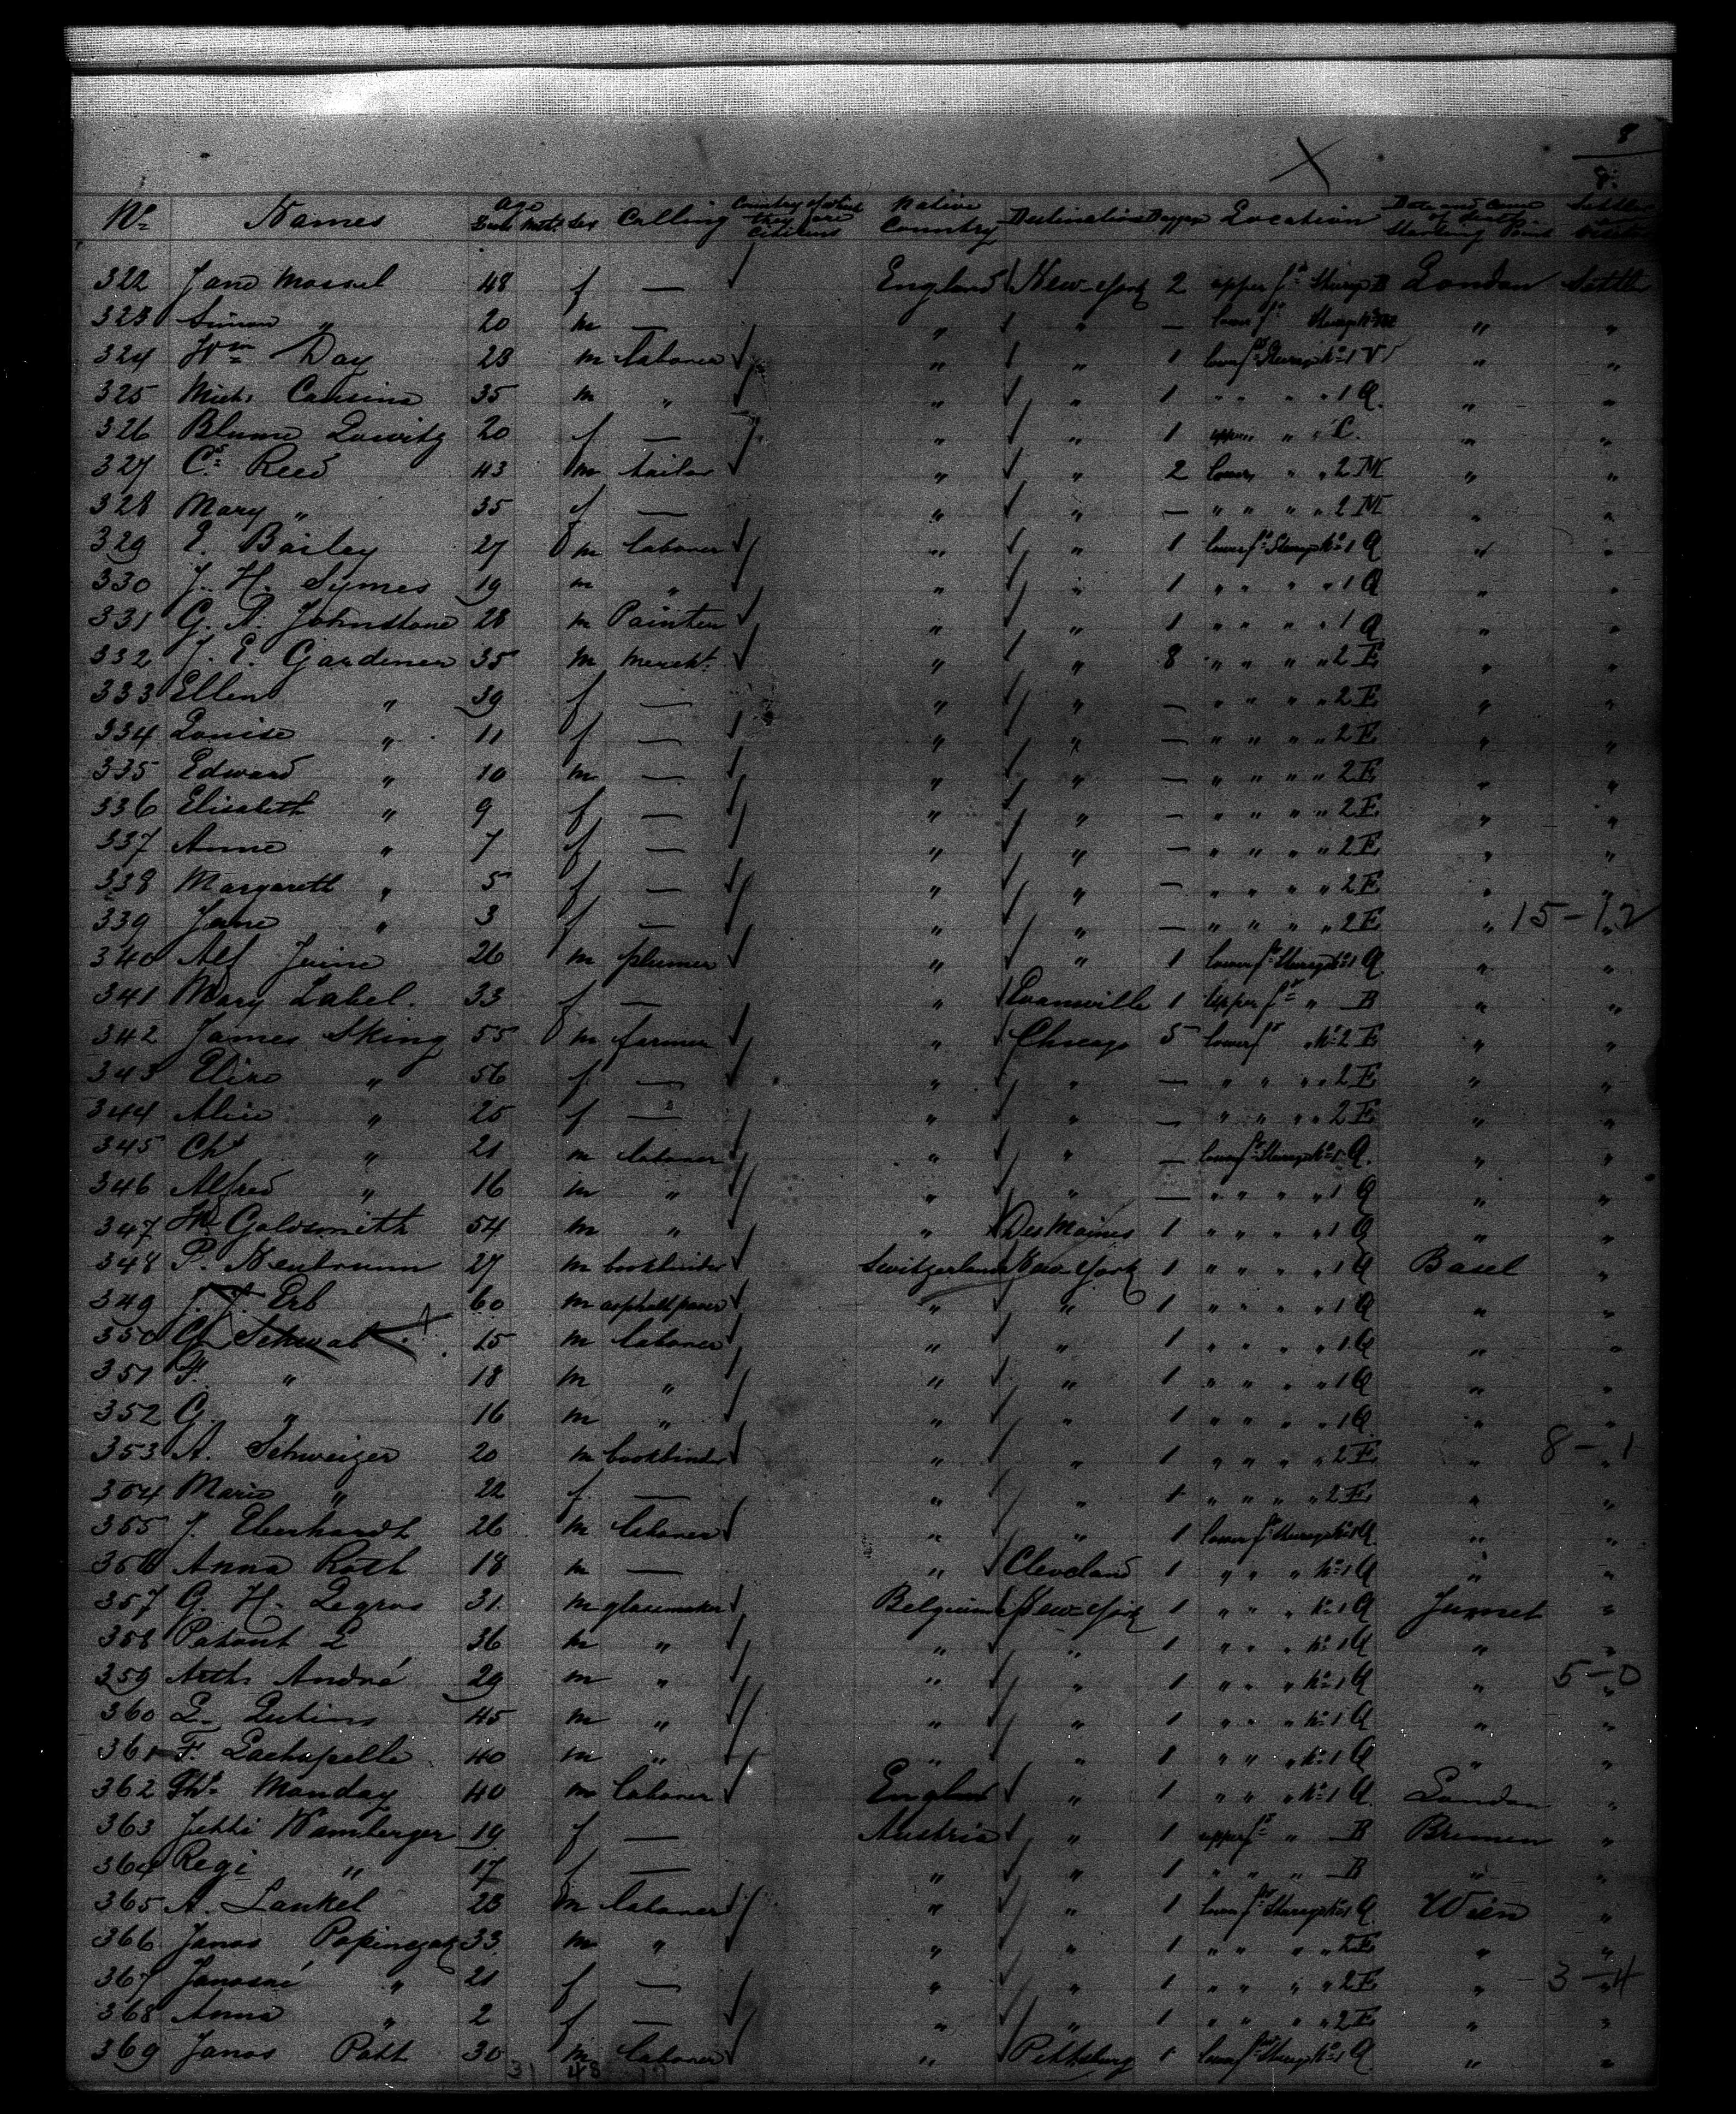 8
8.
No Names Age Sex Calling Country of which they are Citizens Native Country Destination Location Date and Cause of death Starting Point
322 Jane Mossel 48 f — England New-York 2 upper B London Settler
323 Simon " 20 m — " " — lower " "
324 Wm Day 28 m laborer " " 1 lower No 1 " "
325 Mich. Cousins 35 m " " " 1 " " " " 1 Q. " "
326 Blume 20 f — " " 1 upper " " C. " "
327 Cs Reed 43 m tailor " " 2 lower " " 2 M " "
328 Mary " 35 f — " " — " " " " 2 M " "
329 E. Bailey 27 m laborer " " 1 lower No 1 Q " "
330 J. H. Symes 19 m " " " 1 " " " " 1 Q " "
331 G. A. Johnstone 28 m Painter " " 1 " " " " 1 Q " "
332 J. E. Gardener 35 m mercht. " " 8 " " " " 2 E " "
333 Ellen " 39 f — " " — " " " " 2 E " "
334 Louise " 11 f — " " — " " " " 2 E " "
335 Edward " 10 m — " " — " " " " 2 E " "
336 Elisabeth " 9 f — " " — " " " " 2 E " "
337 Anne " 7 f — " " — " " " " 2 E " "
338 Margareth " 5 f — " " — " " " " 2 E " "
339 Jane " 3 f — " " — " " " " 2 E " 15-12 "
340 Alf 26 m plumer " " 1 lower No 1 Q " "
341 Mary Label. 33 f — " Evansville 1 Upper " B " "
342 James Sking 55 m farmer " Chicago 5 lower " No 2 E " "
343 Elize " 56 f — " " — " " " " 2 E " "
344 Alice " 25 f — " " — " " " " 2 E " "
345 Chs " 21 m laborer " " — lower No 1 Q. " "
346 Alfred " 16 m " " " — " " " " 1 Q " "
347 Goldsmith 54 m " " Des Moines 1 " " " " 1 Q " "
348 P. Neubrunn 27 m bookbinder Switzerland New-York 1 " " " " 1 Q Basel "
349 J. J. Erb 60 m asphaltpaver " " 1 " " " " 1 Q " "
350 G. Schwab 15 m laborer " " 1 " " " " 1 Q " "
351 F. " 18 m " " " 1 " " " " 1 Q " "
352 G. " 16 m " " " 1 " " " " 1 Q " "
353 A. Schweizer 20 m bookbinder " " 1 " " " " 2 E " 8-1 "
354 Marie " 22 f — " " 1 " " " " 2 E " "
355 J. Eberhardt 26 m laborer " " 1 lower No 1 Q " "
356 Anna Roth 18 m — " Cleveland 1 " " " No 1 Q " "
357 G. H. Legros 31 m glassmaker Belgium New-York 1 " " " No 1 Q Jumet "
358 36 m " " " 1 " " " No 1 Q " "
359 Arth. André 29 m " " " 1 " " " No 1 Q " 5-0 "
360 45 m " " " 1 " " " No 1 Q " "
361 F. Lachapelle 40 m " " " 1 " " " No 1 Q " "
362 Ths. Monday 40 m laborer England " 1 " " " No 1 Q London "
363 Jetti Wamberger 19 f — Austria " 1 upper " B Bremen "
364 Regi " 17 f — " " 1 " " " B " "
365 A. Lankel 28 m laborer " " 1 lower No 1 Q Wien "
366 Janos 33 m " " " 1 " " " " 2 E " "
367 " 21 f — " " 1 " " " " 2 E " 3-4 "
368 Anna " 2 f — " " 1 " " " " 2 E " "
369 Janos Patt 30 m laborer " Pittsburg 1 lower No 1 Q " "
31 48 17